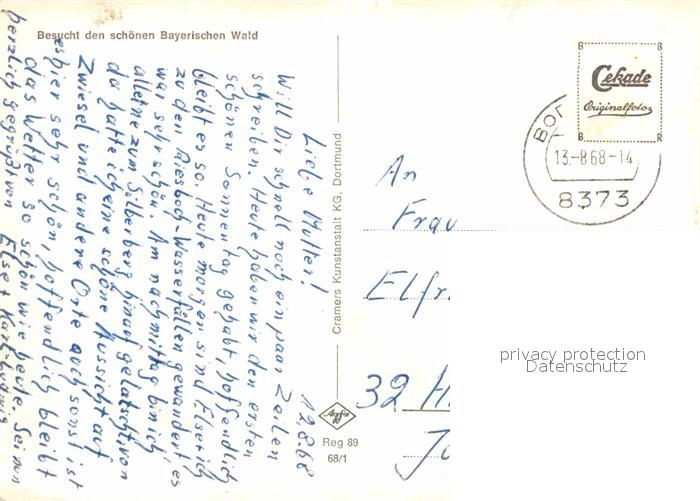 Besucht den schönen Bayerischen Wald
Liebe Mutter! 12.8.68
Will Dir schnell noch ein paar Zeilen
schreiben. Heute haben wir den ersten
schönen Sonnentag gehabt, hoffendlich
bleibt es so. Heute morgen sind Else + ich
zu den Riesloch-Wasserfällen gewandert, es
war sehr schön. Am nachmittag bin ich
alleine zum Silberberg hinauf gelatscht von
da hatte ich eine schöne Aussicht auf
Zwiesel und andere Orte auch sonst ist
es hier sehr schön, hoffendlich bleibt
das Wetter so schön wie heute. Sei nun
herzlich gegrüßt von Else + Karl-Ludwig
Cramers Kunstanstalt KG, Dortmund
Agfa
Reg 89
68/1
B B
Cekade
Originalfoto
B R
BO
13.-8.68-14
8373
An
Frau
Elfr
32 H
Jo
privacy protection
Datenschutz